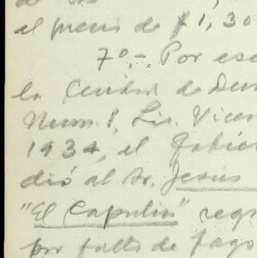 el precio de $1,30
7º.-. Por esc
la Ciudad de Du
Num. 1, Lic. Vice
1934, el Gobie
dió al Sr. Jesús
"El Capulin" regi
por falta de pago